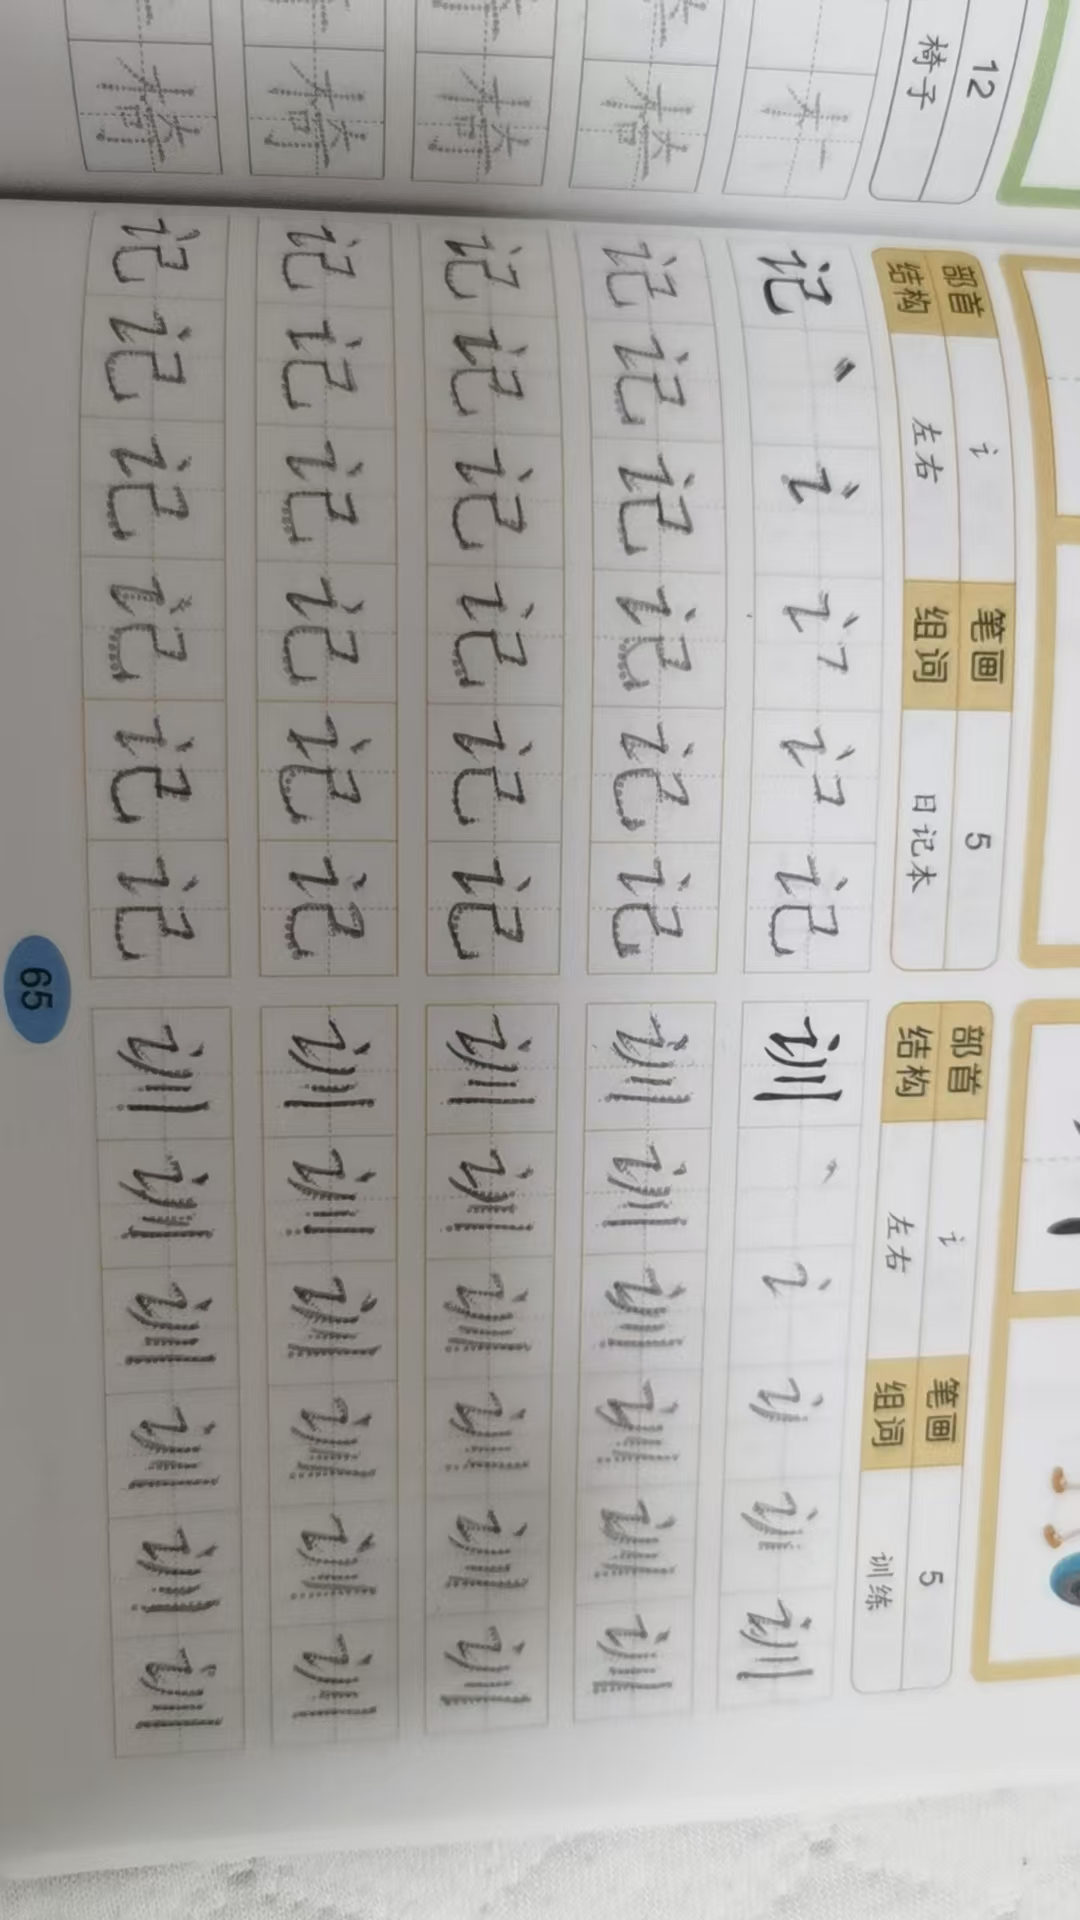 12
椅子
椅
椅
椅
椅
部首 讠 笔画 5
结构 左右 组词 日记本
记 丶 讠 记
记 记 记 记 记 记
记 记 记 记 记 记
记 记 记 记 记 记
记 记 记 记 记 记
部首 讠 笔画 5
结构 左右 组词 训练
训 丶 讠 训
训 训 训 训 训 训
训 训 训 训 训 训
训 训 训 训 训 训
训 训 训 训 训 训
65